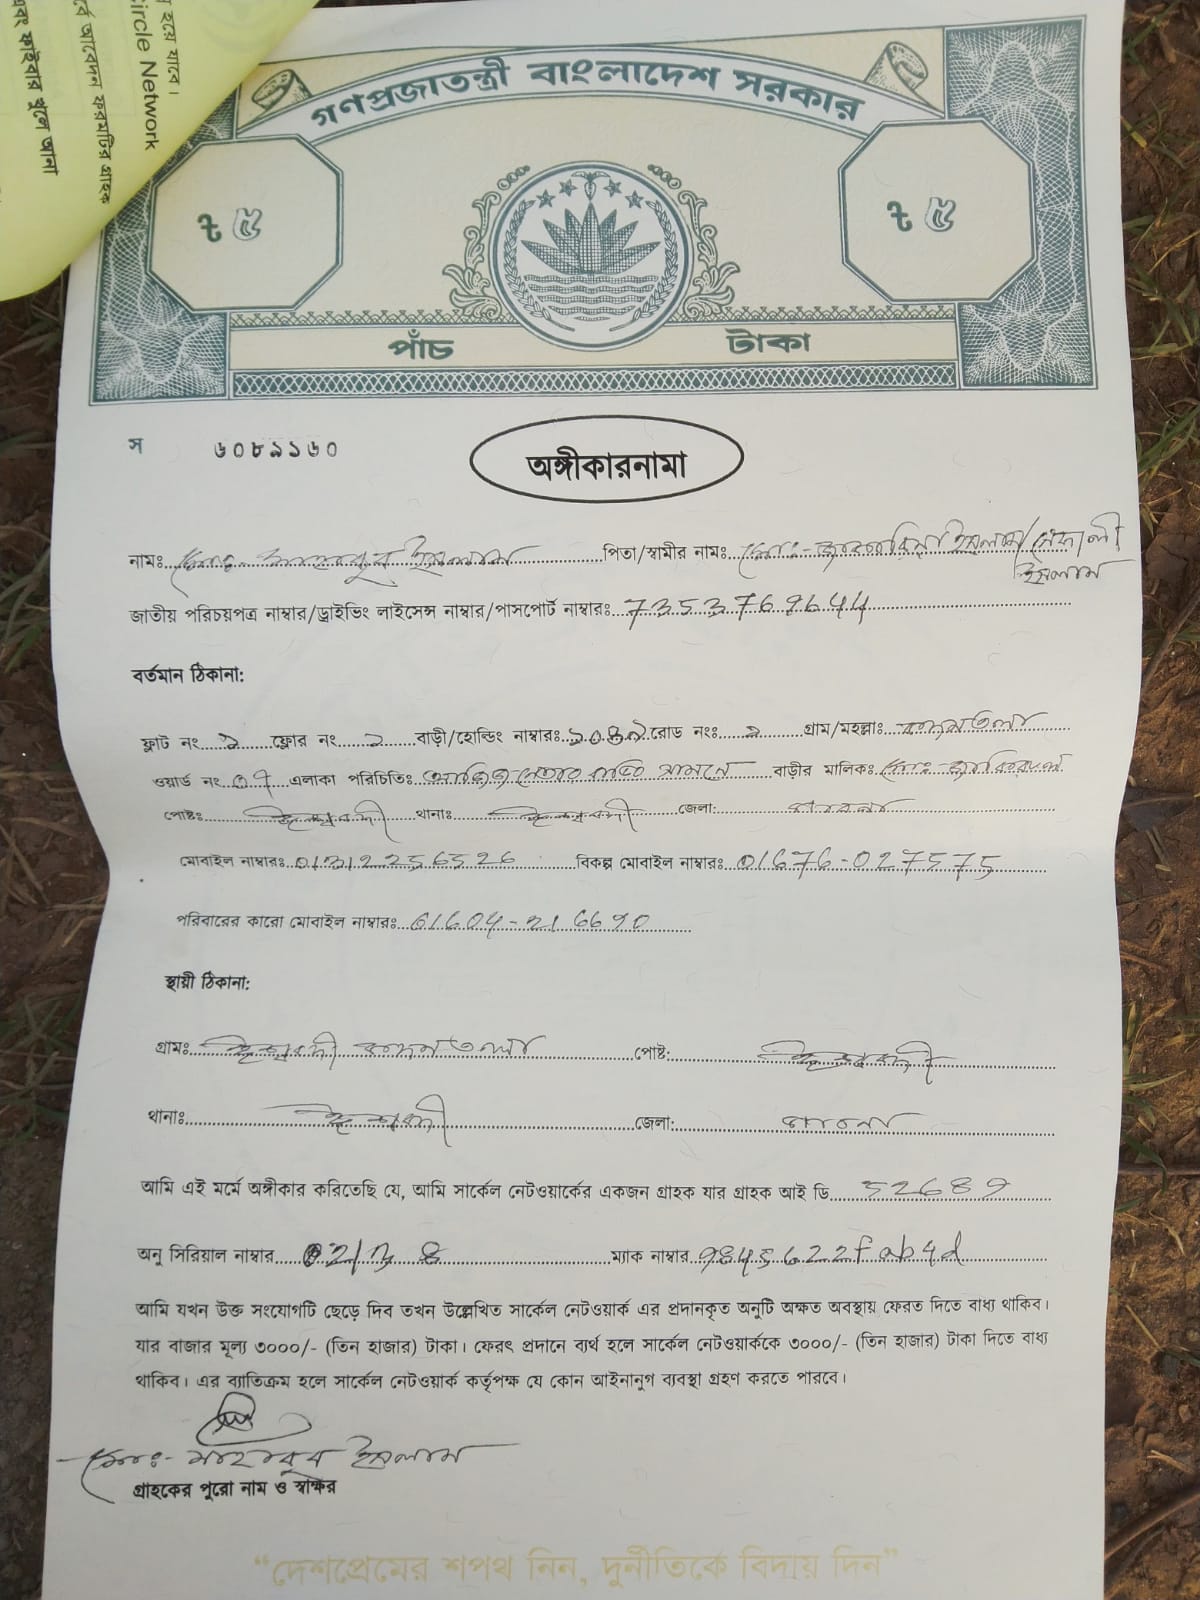 হয়ে যাবে।
ircle Network
র্বে আবেদন ফরমটির গ্রাহক
এবং ফাইবার খুলে আনা
গণপ্রজাতন্ত্রী বাংলাদেশ সরকার
৳ ৫ ৳ ৫
পাঁচ টাকা
স ৬০৮৯১৬০
অঙ্গীকারনামা
নামঃ মোঃ মাহাবুব ইসলাম পিতা/স্বামীর নামঃ মোঃ- ইসলাম/
ইসলাম
জাতীয় পরিচয়পত্র নাম্বার/ড্রাইভিং লাইসেন্স নাম্বার/পাসপোর্ট নাম্বারঃ
বর্তমান ঠিকানা:
ফ্লাট নং ফ্লোর নং বাড়ী/হোল্ডিং নাম্বারঃ রোড নংঃ গ্রাম/মহল্লাঃ কদমতলা
ওয়ার্ড নং ০৭ এলাকা পরিচিতিঃ সামনে বাড়ীর মালিকঃ মোঃ-
পোষ্টঃ ঈশ্বরদী থানাঃ ঈশ্বরদী জেলা: পাবনা
মোবাইল নাম্বারঃ বিকল্প মোবাইল নাম্বারঃ 01676-027575
পরিবারের কারো মোবাইল নাম্বারঃ
স্থায়ী ঠিকানা:
গ্রামঃ ঈশ্বরদী কদমতলা পোষ্ট: ঈশ্বরদী
থানাঃ ঈশ্বরদী জেলা: পাবনা
আমি এই মর্মে অঙ্গীকার করিতেছি যে, আমি সার্কেল নেটওয়ার্কের একজন গ্রাহক যার গ্রাহক আই ডি
অনু সিরিয়াল নাম্বার ম্যাক নাম্বার 9845622fab4d
আমি যখন উক্ত সংযোগটি ছেড়ে দিব তখন উল্লেখিত সার্কেল নেটওয়ার্ক এর প্রদানকৃত অনুটি অক্ষত অবস্থায় ফেরত দিতে বাধ্য থাকিব।
যার বাজার মূল্য ৩০০০/- (তিন হাজার) টাকা। ফেরৎ প্রদানে ব্যর্থ হলে সার্কেল নেটওয়ার্ককে ৩০০০/- (তিন হাজার) টাকা দিতে বাধ্য
থাকিব। এর ব্যতিক্রম হলে সার্কেল নেটওয়ার্ক কর্তৃপক্ষ যে কোন আইনানুগ ব্যবস্থা গ্রহণ করতে পারবে।
মোঃ- মাহাবুব ইসলাম
গ্রাহকের পুরো নাম ও স্বাক্ষর
“দেশপ্রেমের শপথ নিন, দুর্নীতিকে বিদায় দিন”